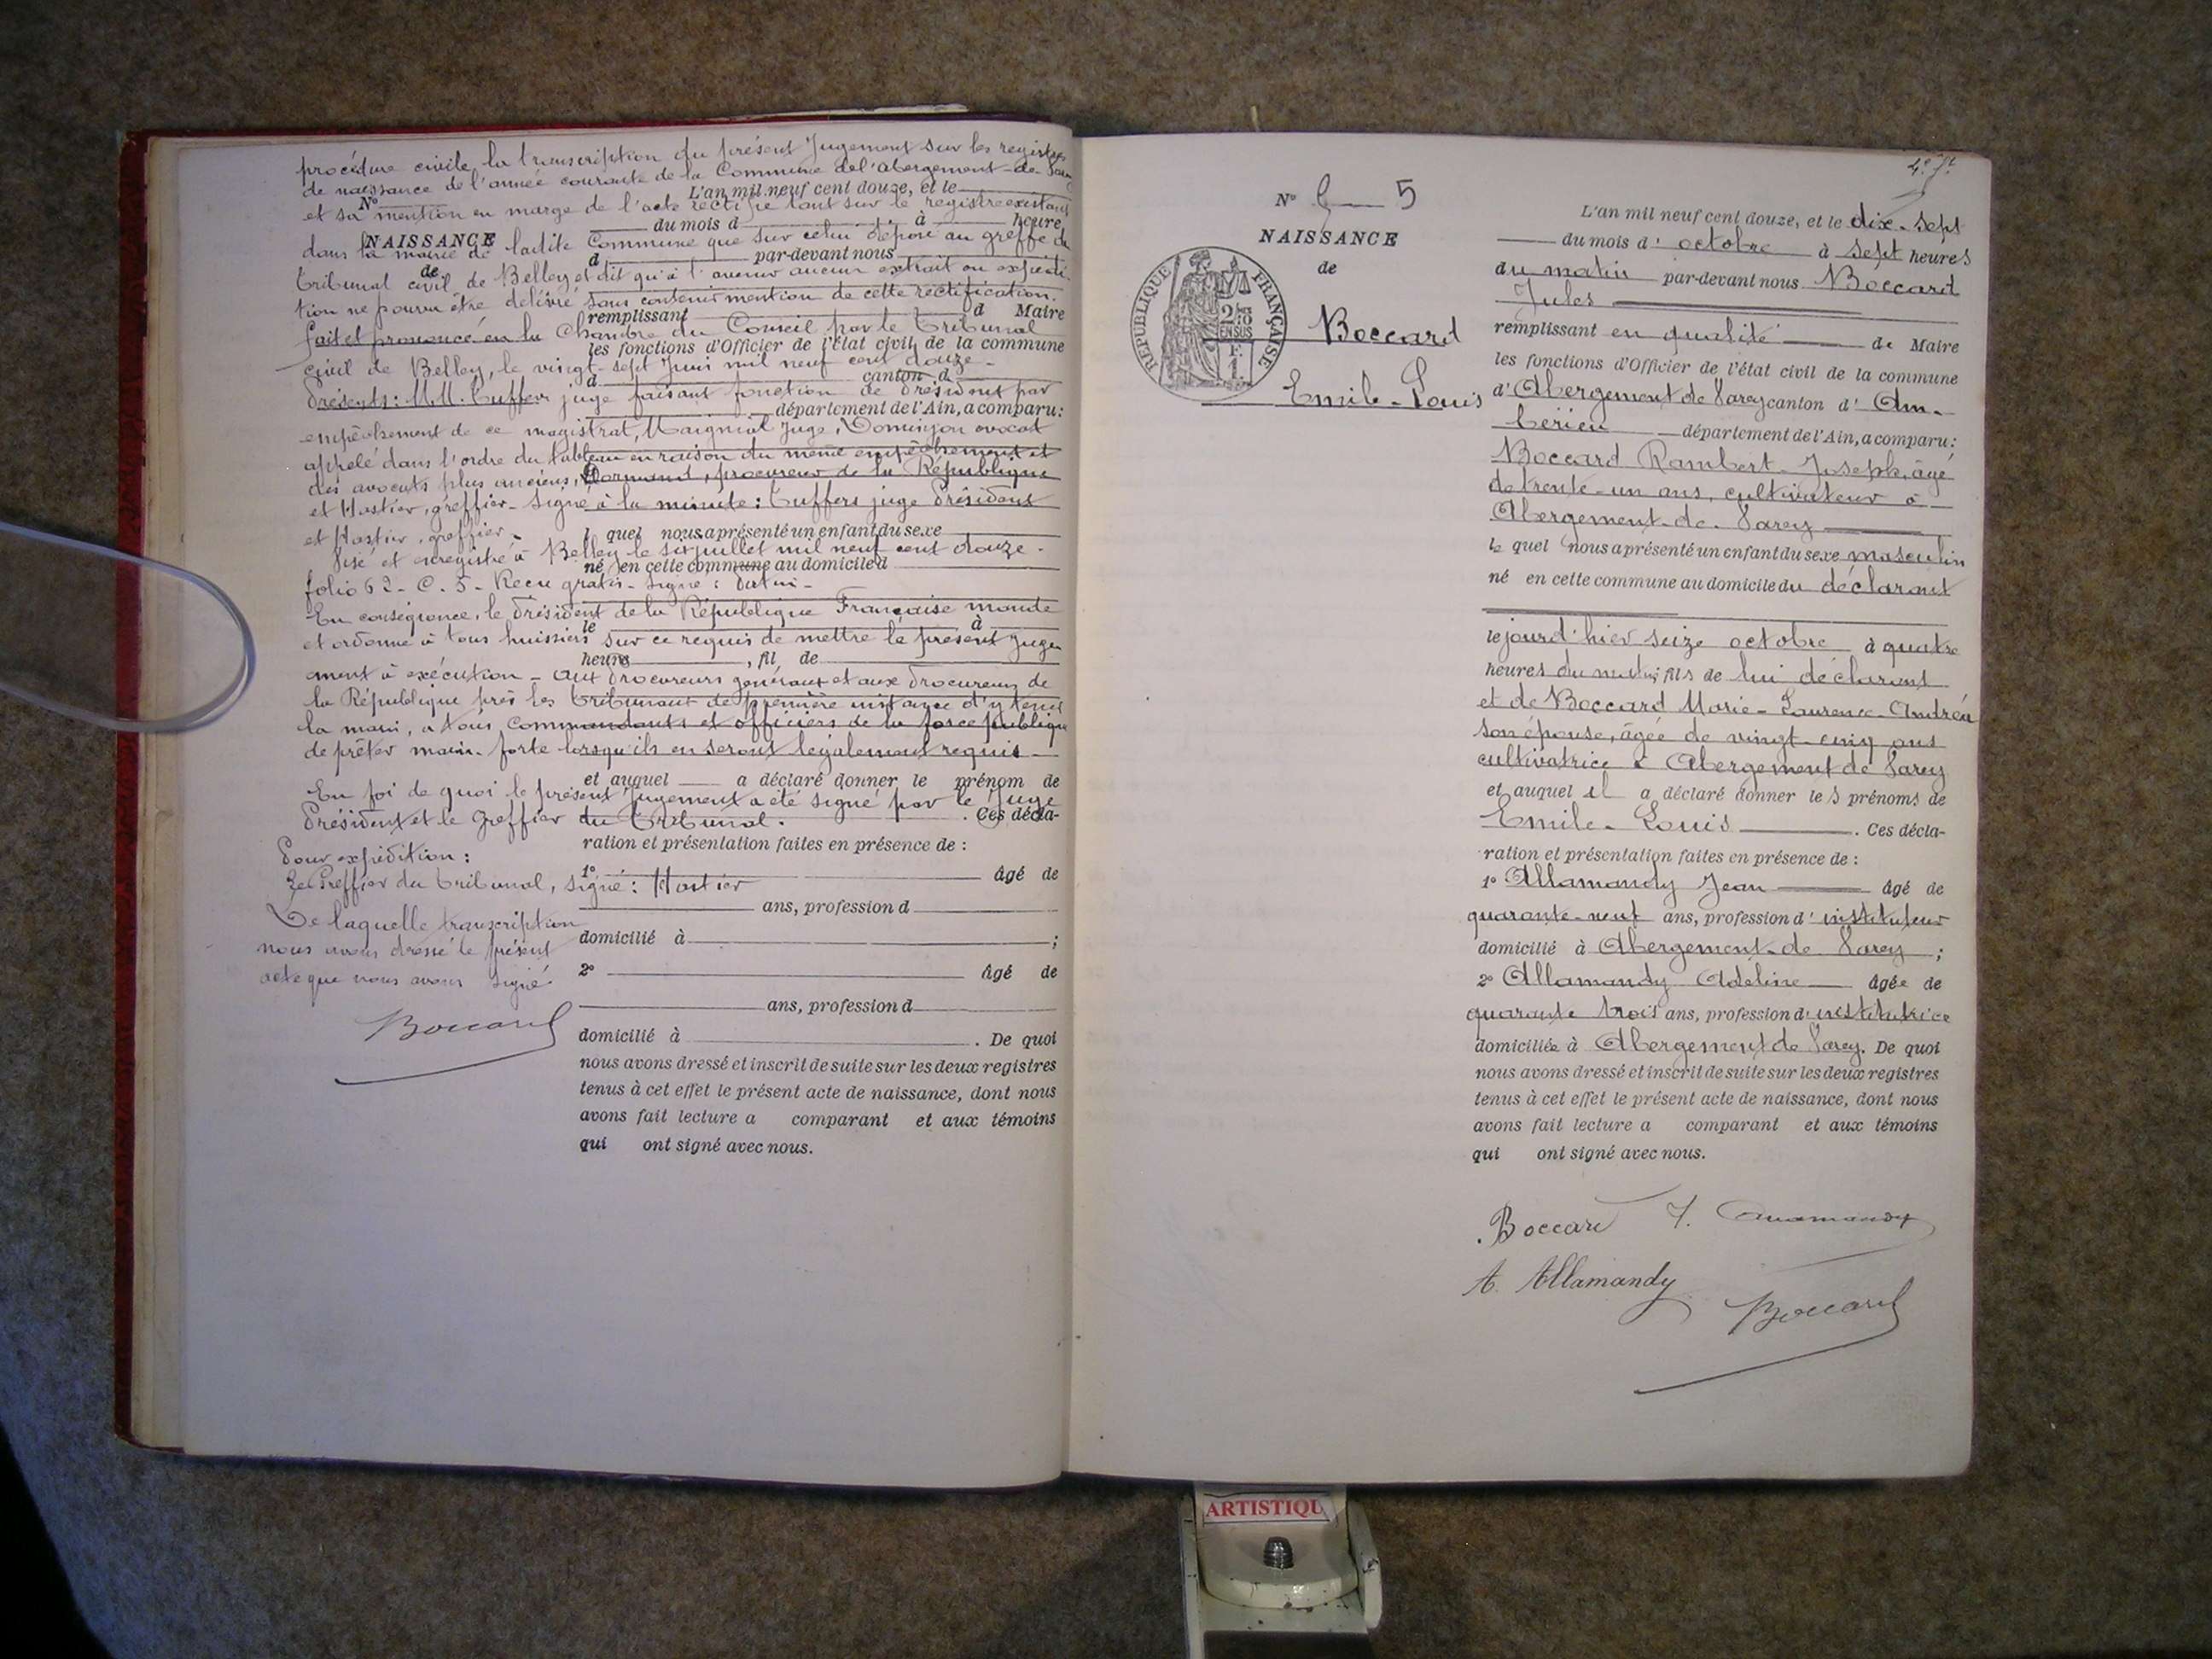 procédure civile, la transcription du présent Jugement sur les registres
de naissance de l'année courante de la Commune de l'abergement-de-Varey
L'an mil neuf cent douze, et le
et sa mention en marge de l'acte rectifié tant sur le registre existant
N°
du mois d à heure
dans la mairie de ladite Commune que sur celui déposé au greffe du
NAISSANCE
d par-devant nous
de
tribunal civil de Belley et dit qu'à l'avenir aucun extrait ou expédi-
tion ne pourra être délivré sans contenir mention de cette rectification.
remplissant d Maire
fait et prononcé en la Chambre du Conseil par le Tribunal
les fonctions d'Officier de l'état civil de la commune
civil de Belley, le vingt-sept Juin mil neuf cent douze -
d canton d
Présents: M.M. Cuffer juge faisant fonction de Président par
département de l'Ain, a comparu:
empêchement de ce magistrat, Maignial Juge, Dominjon avocat
appelé dans l'ordre du tableau en raison du même empêchement et
des avocats plus anciens, Dormand, procureur de la République
et Hostier, greffier - Signé à la minute: Cuffers juge Président
et Hostier, greffier -
l quel nous a présenté un enfant du sexe
Visé et enregistré à Belley le six juillet mil neuf cent douze -
né en cette commune au domicile d
folio 62 - C. 5 - Recu gratis - Signé :
En conséquence, le Président de la République Française mande
et ordonne à tous huissiers sur ce requis de mettre le présent Juge-
le à
heure , fil de
ment à exécution - aux Procureurs généraux et aux Procureurs de
la République près les tribunaux de première instance d'y tenir
la main, à tous commandants et officiers de la force publique
de prêter main-forte lorsqu'ils en seront légalement requis -
et auquel a déclaré donner le prénom de
En foi de quoi le présent Jugement a été signé par le Juge
Président et le Greffier du Tribunal.
. Ces décla-
ration et présentation faites en présence de :
Pour expédition :
Le Greffier du tribunal, signé : Hostier
1° âgé de
ans, profession d
De laquelle transcription
domicilié à ;
nous avons dressé le présent
acte que nous avons signé
2° âgé de
ans, profession d
Boccard
domicilié à . De quoi
nous avons dressé et inscrit de suite sur les deux registres
tenus à cet effet le présent acte de naissance, dont nous
avons fait lecture a comparant et aux témoins
qui ont signé avec nous.
N° 5
NAISSANCE
de
RÉPUBLIQUE FRANÇAISE
EN SUS
Boccard
Emile-Louis
L'an mil neuf cent douze, et le dix-sept
du mois d'octobre à sept heures
du matin par-devant nous Boccard
Jules
remplissant en qualité de Maire
les fonctions d'Officier de l'état civil de la commune
d'Abergement de Varey canton d'Am-
bérieu département de l'Ain, a comparu:
Boccard Rambert-Joseph, âgé
de trente-un ans, cultivateur à
Abergement-de-Varey
le quel nous a présenté un enfant du sexe masculin
né en cette commune au domicile du déclarant
le jourd'hier seize octobre à quatre
heures du matin, fils de lui déclarant
et de Boccard Marie-Laurence-Andréa
son épouse, âgée de vingt-cinq ans
cultivatrice à Abergement de Varey
et auquel il a déclaré donner les prénoms de
Emile-Louis . Ces décla-
ration et présentation faites en présence de :
1° Allamandy Jean âgé de
quarante-neuf ans, profession d'instituteur
domicilié à Abergement-de Varey ;
2° Allamandy Adéline âgée de
quarante trois ans, profession d'institutrice
domiciliée à Abergement de Varey. De quoi
nous avons dressé et inscrit de suite sur les deux registres
tenus à cet effet le présent acte de naissance, dont nous
avons fait lecture a comparant et aux témoins
qui ont signé avec nous.
Boccard J. Allamandy
A. Allamandy
Boccard
ARTISTIQU